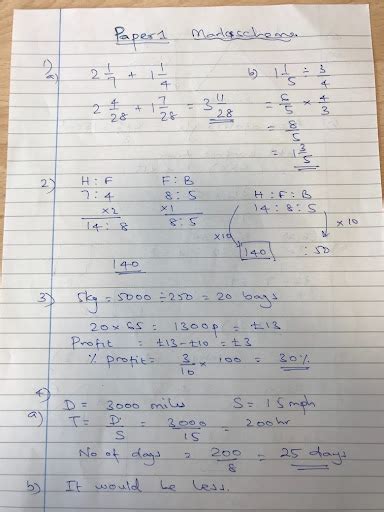 Paper 1 Markscheme
1)
a) 2 1/7 + 1 1/4 b) 1 1/5 ÷ 3/4
2 4/28 + 1 7/28 = 3 11/28 = 6/5 × 4/3
= 8/5
= 1 3/5
2) H : F F : B H : F : B
7 : 4 8 : 5 14 : 8 : 5
×2 ×1 ×10
14 : 8 8 : 5 ×10
140 140 : 50
3) 5kg = 5000 ÷ 250 = 20 bags
20 × 65 = 1300p = £13
Profit : £13 - £10 = £3
% profit = 3/10 × 100 = 30%
4)
a) D = 3000 miles S = 15 mph
T = D/S = 3000/15 = 200hr
No of days = 200/8 = 25 days
b) It would be less.